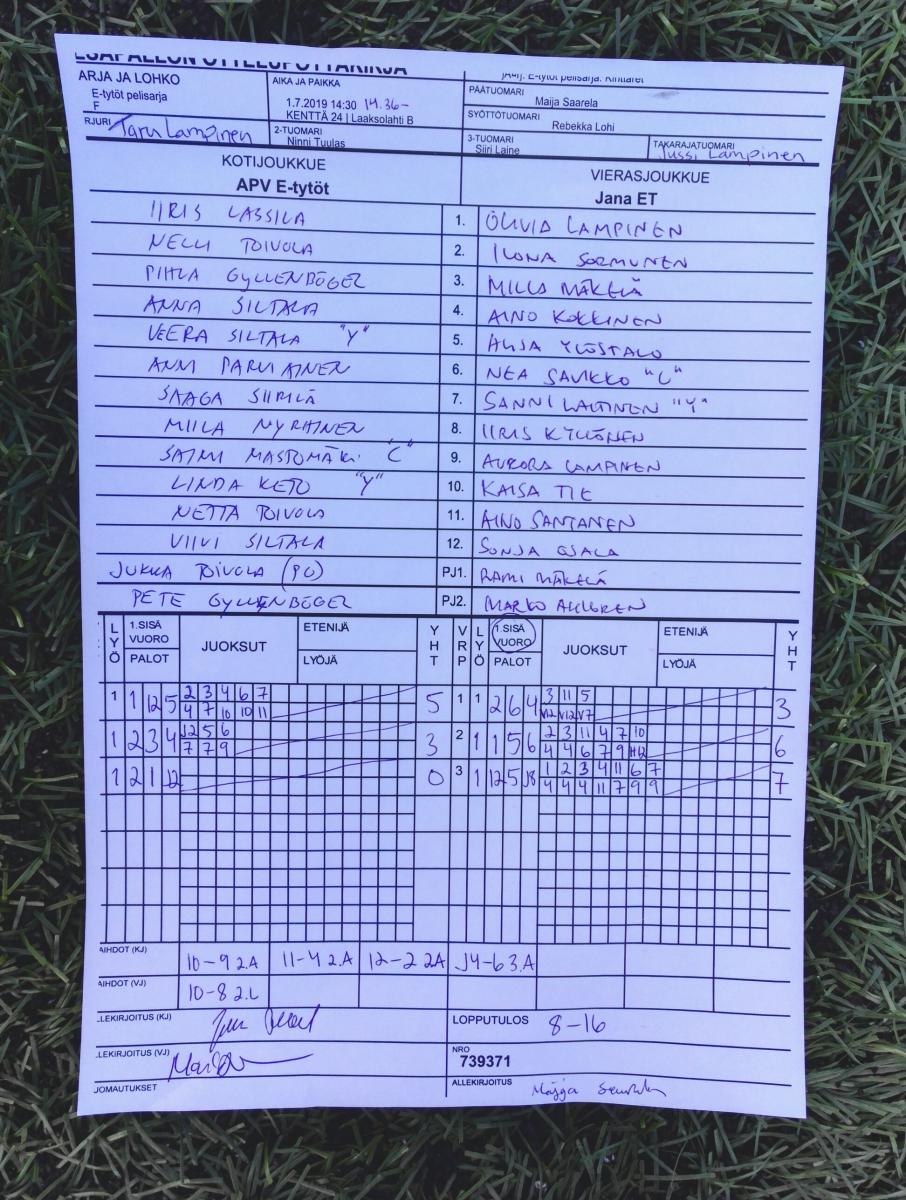 ESÄPALLON OTTELUPÖYTÄKIRJA
ARJA JA LOHKO
E-tytöt pelisarja
F
AIKA JA PAIKKA
1.7.2019 14:30 14.36-
KENTTÄ 24 | Laaksolahti B
E-tytöt pelisarja.
PÄÄTUOMARI
Maija Saarela
SYÖTTÖTUOMARI
Rebekka Lohi
RJURI Taru Lampinen
2-TUOMARI
Ninni Tuulas
3-TUOMARI
Siiri Laine
TAKARAJATUOMARI
Jussi Lampinen
KOTIJOUKKUE
APV E-tytöt
VIERASJOUKKUE
Jana ET
IIRIS LASSILA 1. OLIVIA LAMPINEN
NELLI TOIVOLA 2. ILONA SORMUNEN
PIHLA GYLLENBÖGEL 3. MILLA MÄKELÄ
ANNA SILTALA 4. AINO KOKKINEN
VEERA SILTALA "Y" 5. YLÖSTALO
ANNI PARVIAINEN 6. NEA SAVIKKO "C"
SAAGA SIIRILÄ 7. SANNI LAITINEN "Y"
MIILA NYRHINEN 8. IIRIS KYLLÖNEN
SAIMI MASTOMÄKI "C" 9. AURORA LAMPINEN
LINDA KETO "Y" 10. KAISA TIE
NETTA TOIVOLA 11. AINO SANTANEN
VIIVI SILTALA 12. SONJA OJALA
JUKKA TOIVOLA (PC) PJ1. RAMI MÄKELÄ
PETE GYLLENBÖGEL PJ2. MARKO AHLGREN
LYÖ 1.SISÄ VUORO PALOT JUOKSUT ETENIJÄ LYÖJÄ YHT VRP LYÖ 1.SISÄ VUORO PALOT JUOKSUT ETENIJÄ LYÖJÄ YHT
1 1 12 5 2 3 4 6 7 5 1 1 2 6 4 3 11 5 3
4 7 10 10 11 V12 V12 V7
1 2 3 4 J2 5 6 3 2 1 1 5 6 2 3 11 4 7 10 6
7 7 9 4 4 6 7 9 H12
1 2 1 12 0 3 1 12 5 J8 1 2 3 4 11 6 7 7
4 4 4 11 7 9 9
AIHDOT (KJ) 10-9 2.A 11-4 2.A 12-2 2A J4-6 3.A
AIHDOT (VJ) 10-8 2.L
LEKIRJOITUS (KJ)
LOPPUTULOS 8-16
LEKIRJOITUS (VJ)
NRO
739371
JOMAUTUKSET
ALLEKIRJOITUS